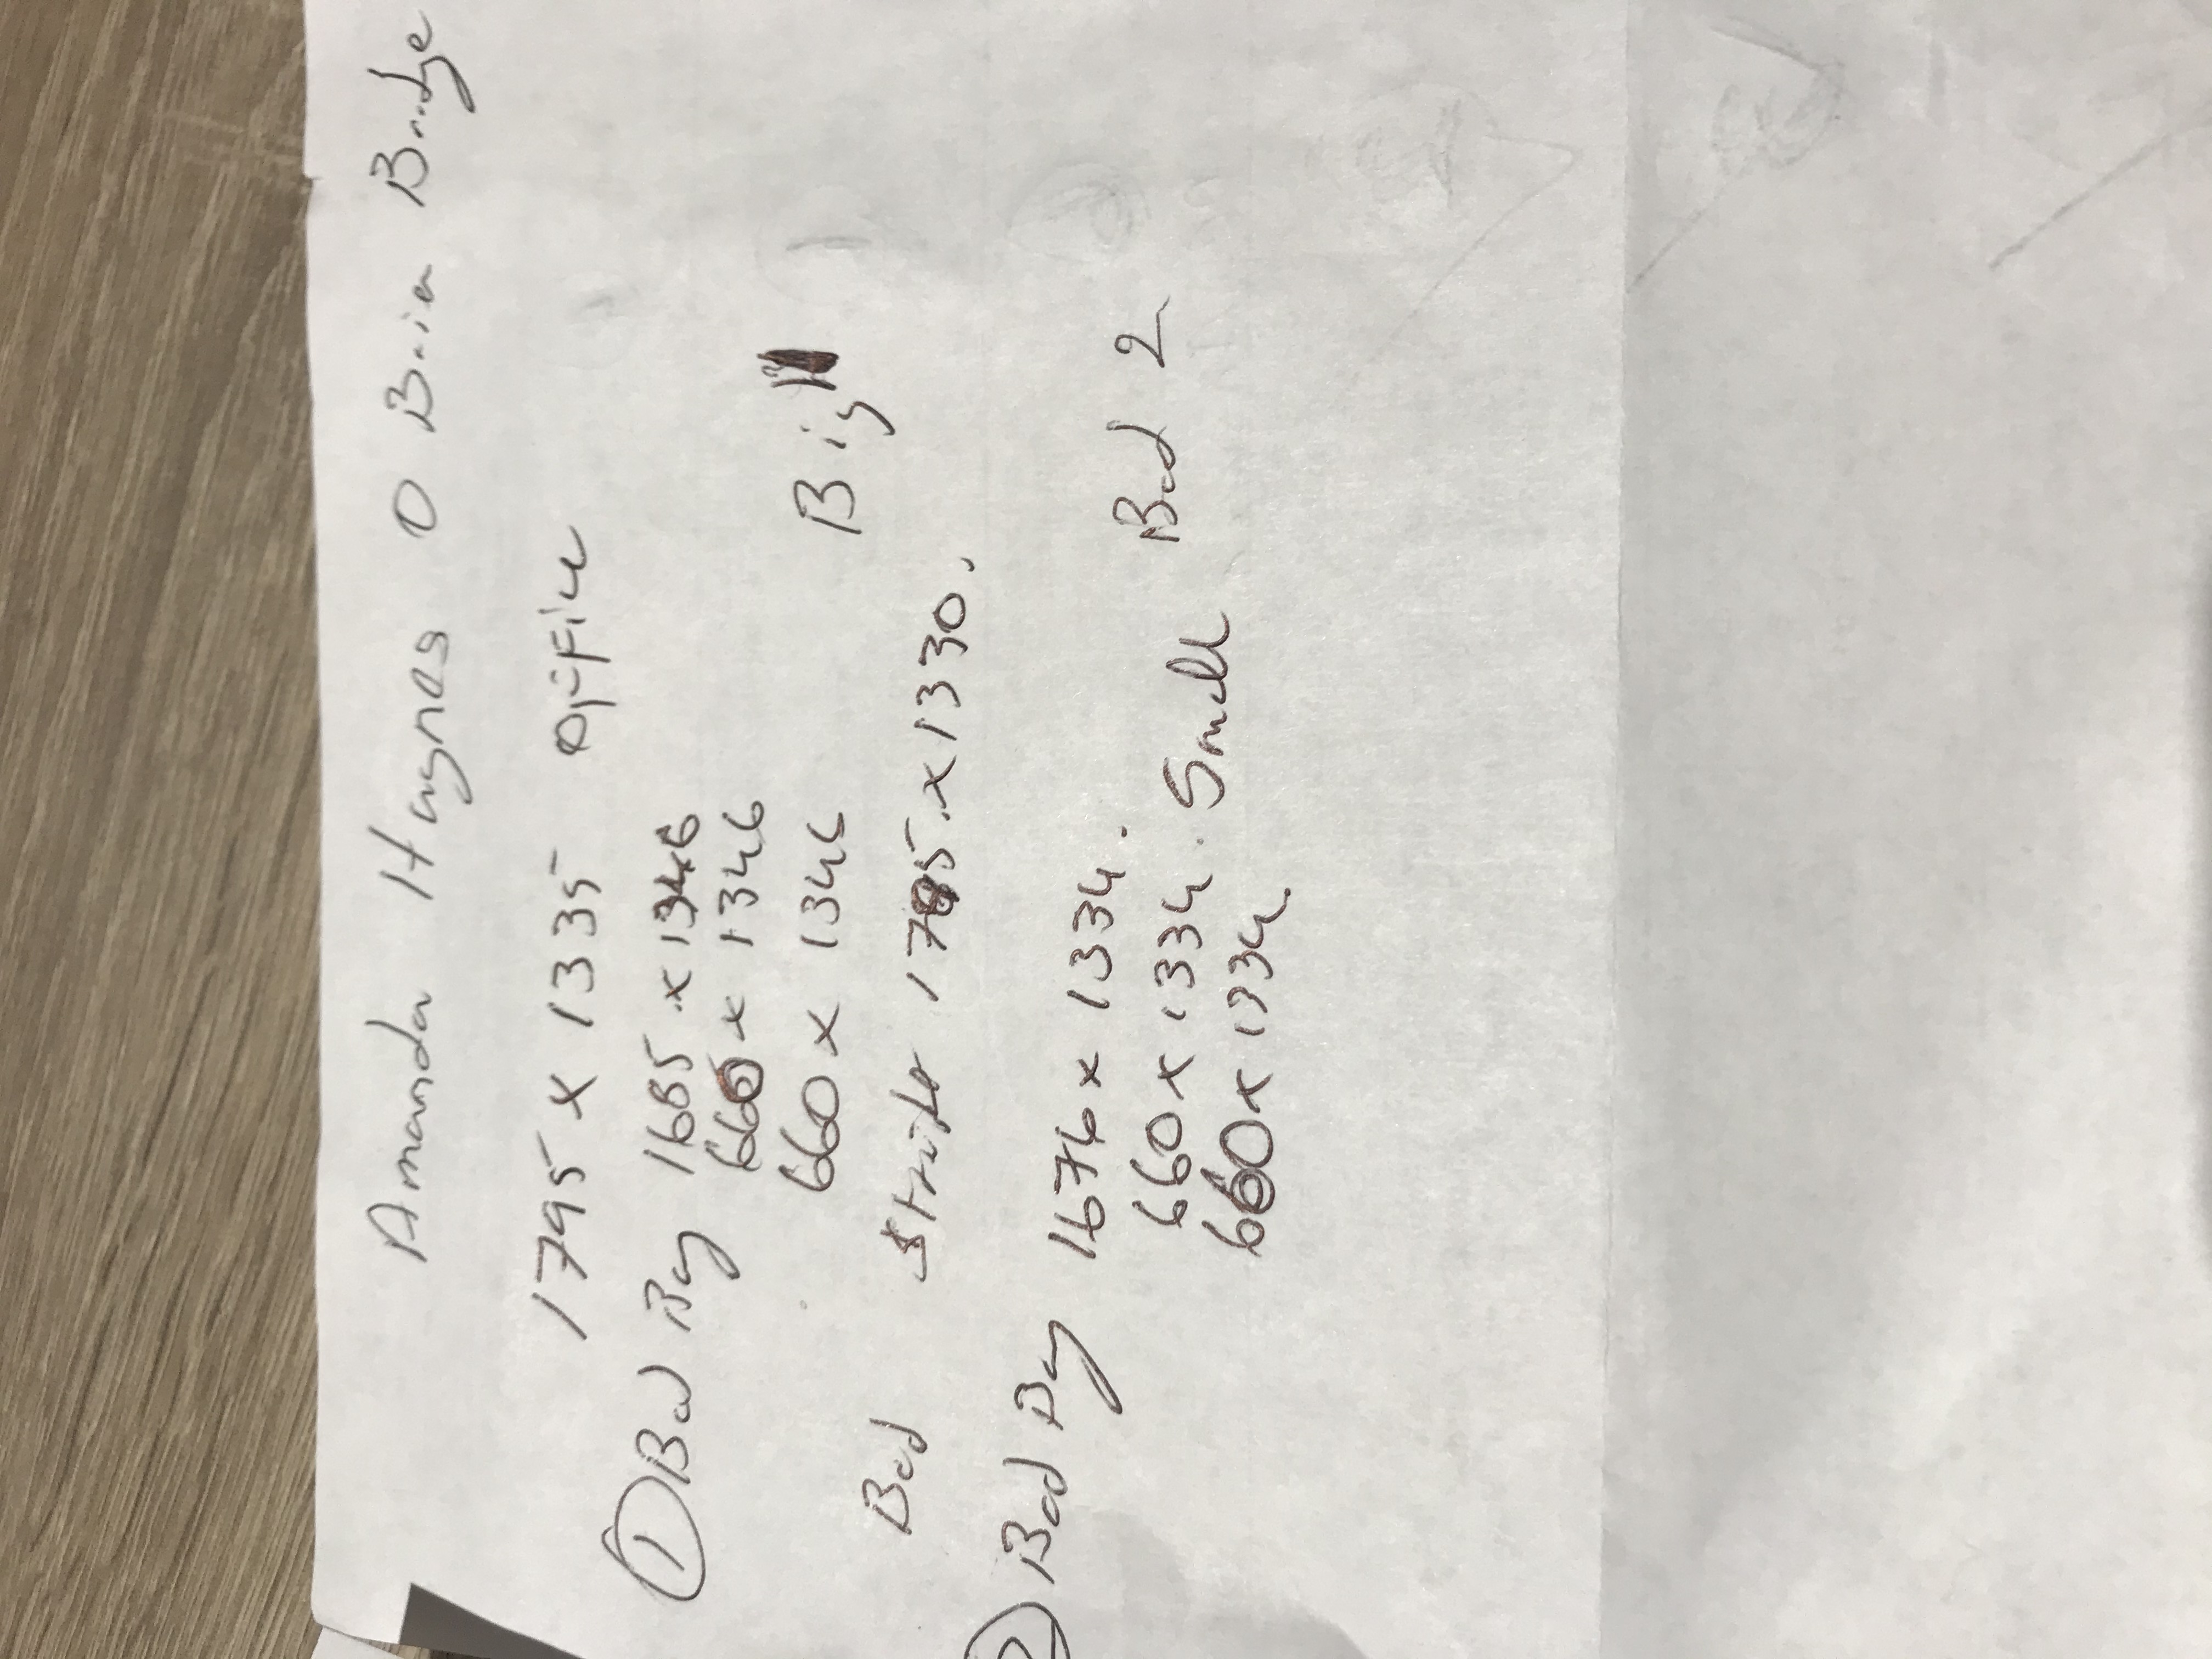 Amanda Haynes O Brien Bridge
1795 x 1335 office
① Bed Bay 1685 x 1346
660 x 1346
660 x 1346 Big
Bed 1785 x 1330.
② Bed Bay 1676 x 1334.
660 x 1334. Small Bed 2
660 x 1334